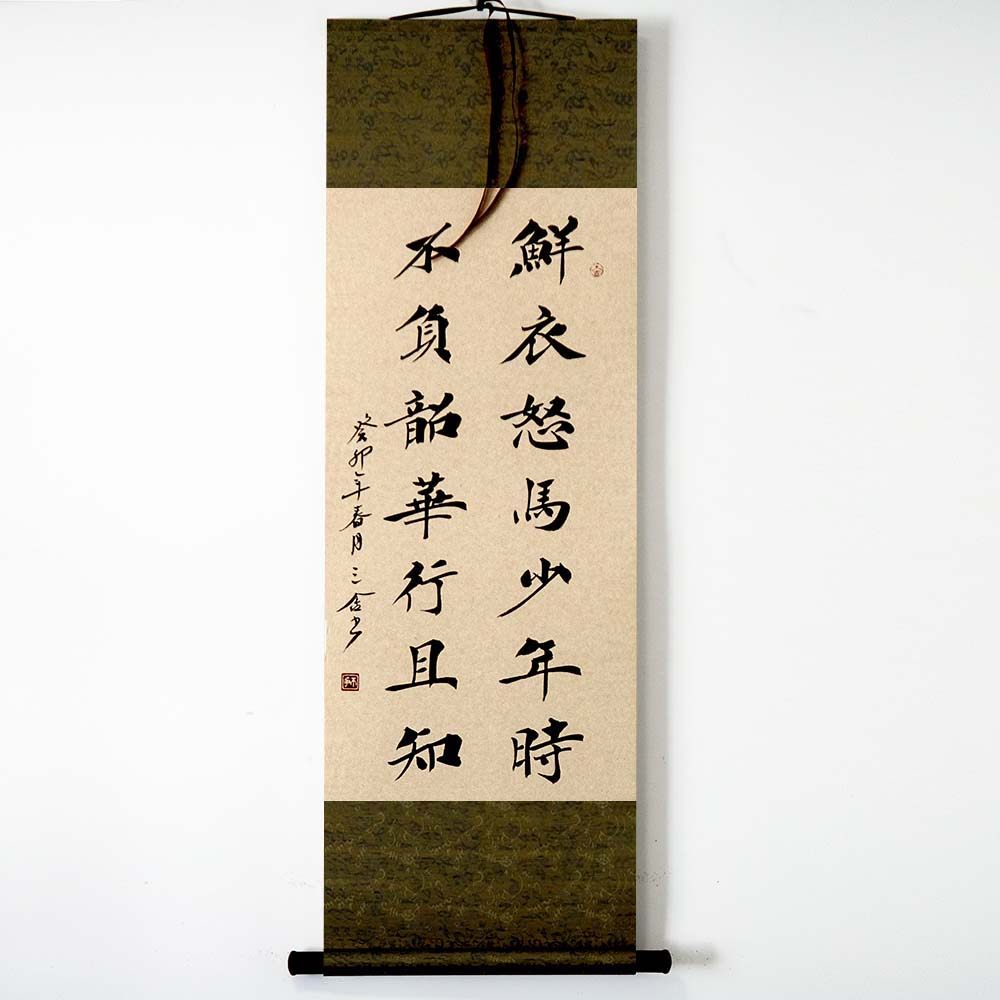 鮮衣怒馬少年時
不負韶華行且知
癸卯年春月三舍书